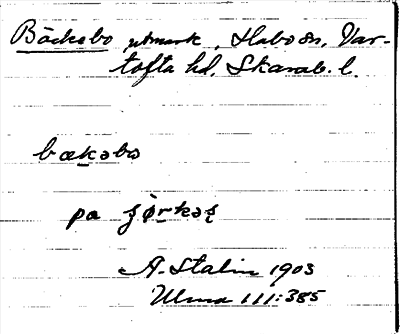 Bäckebo utmark, Habo sn, Var-
tofta hd, Skarab. l.
bækəbω
pa
A. Stalin 1903
Ulma 111:385